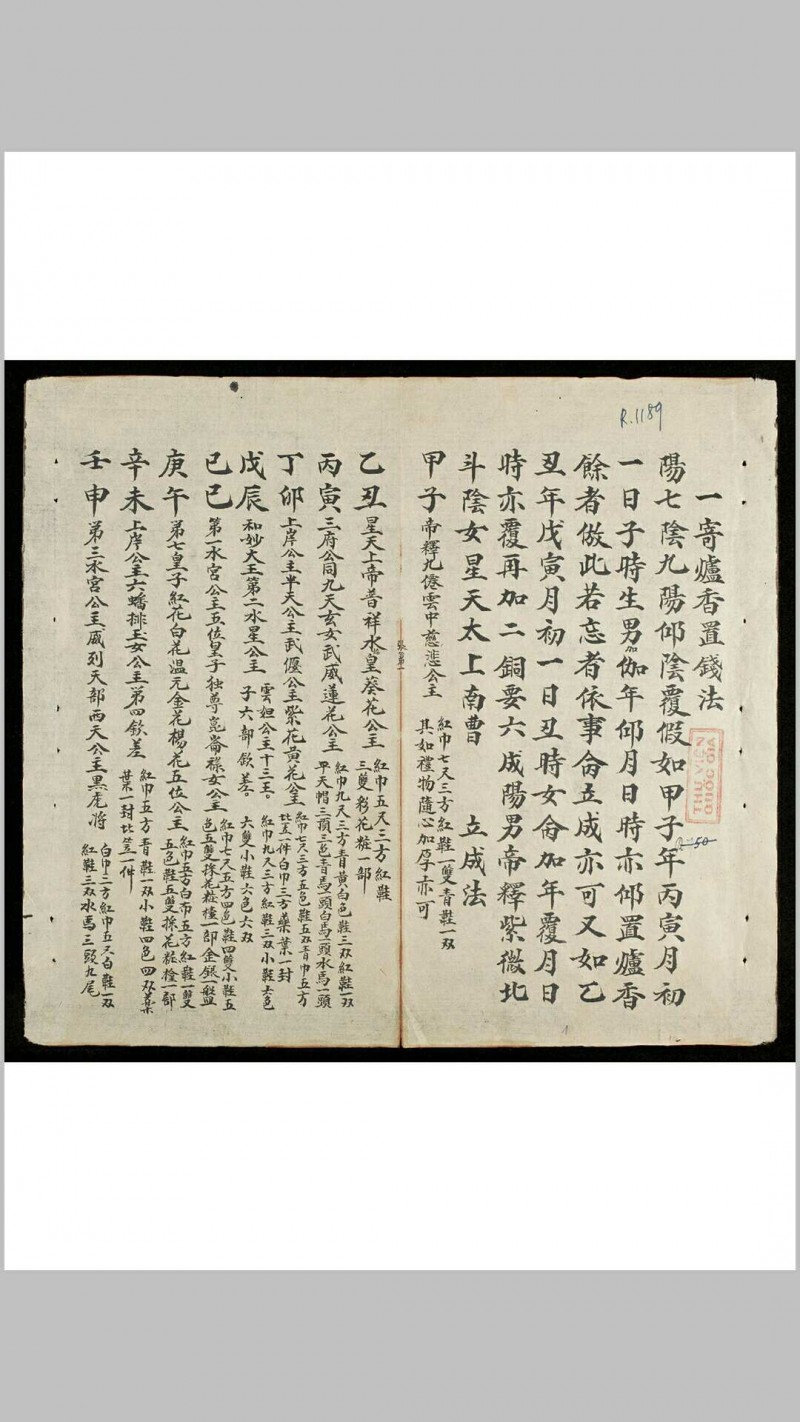 R.1189
一寄爐香置錢法
陽七陰九陽仰陰覆假如甲子年丙寅月初
一日子時生男加伽年仰月日時亦仰置爐香
餘者倣此若忘者依事侖立成亦可又如乙
丑年戊寅月初一日丑時女侖加年覆月日
時亦覆再加二銅要六成陽男帝釋紫微北
斗陰女星天太上南曹 立成法
甲子帝釋九僊雲中慈悲公主 紅巾七尺三方紅鞋一雙青鞋一双
其如禮物隨心加厚亦可
乙丑星天上帝普祥水皇葵花公主 紅巾五尺三方紅鞋
三雙彩花粧一部
丙寅三府公同九天玄女武威蓮花公主 紅巾九尺三方青黃白色鞋三双紅鞋一双
平天帽三頂三色青馬一頭白馬一頭水馬一頭
丁卯上岸公主半天公主武偃公主紫花黃花公主 紅巾七尺三方五色鞋五双青巾五方
比笠一件白巾三方藥葉一封
戊辰和妙大王第二水星公主 雲妲公主十三王。
子六部欽差。 紅巾九尺三方紅鞋三双小鞋六色
六雙小鞋六色六双
己巳第一水宮公主五位皇子独尊崑崙祿女公主 紅巾七尺五方四色鞋四雙小鞋五
色五雙採花粧樓一部金銀一盤
庚午第七皇子紅花白花温元金花楊花五位公主 紅巾五方白巾五方紅鞋一雙
五色鞋五雙採花粧樓一部
辛未上岸公主六蟠排玉女公主第四欽差 紅巾五方青鞋一双小鞋四色四双藥
葉一封比笠一件
壬申第三水宮公主威列天部西天公主黑虎將 白巾二方紅巾五尺白鞋一双
紅鞋三双水馬三頭九尾
THƯ VIỆN
QUỐC GIA